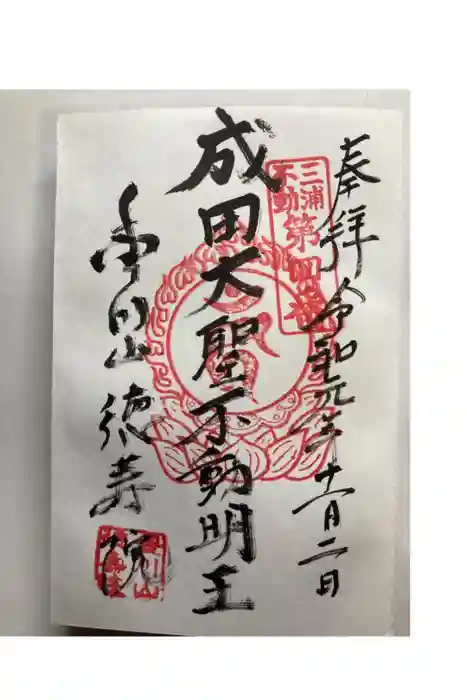 奉拝 令和元年十一月二日
三浦不動
第四番
成田大聖不動明王
徳寿院